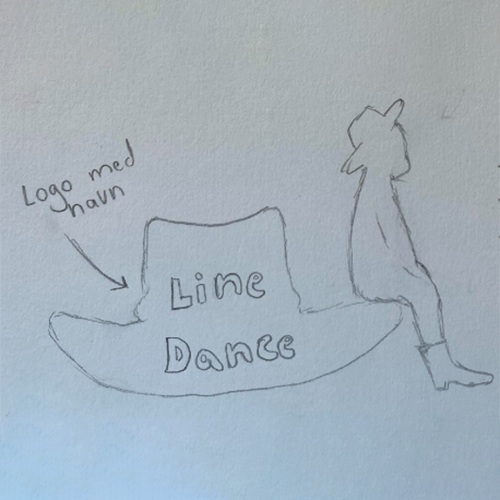 Logo med
navn
Line
Dance